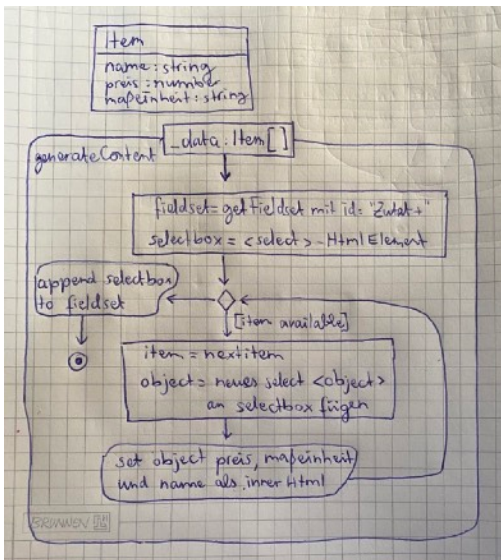 Item
name: string
preis: number
maßeinheit: string
_data: Item[]
generateContent
fieldset = get fieldset mit id: "Zutat+"
selectbox = <select> - Html Element
append selectbox
to fieldset
[item available]
item = nextitem
object = neues select <object>
an selectbox fügen
set object preis, maßeinheit
und name als inner Html
BRUNNEN